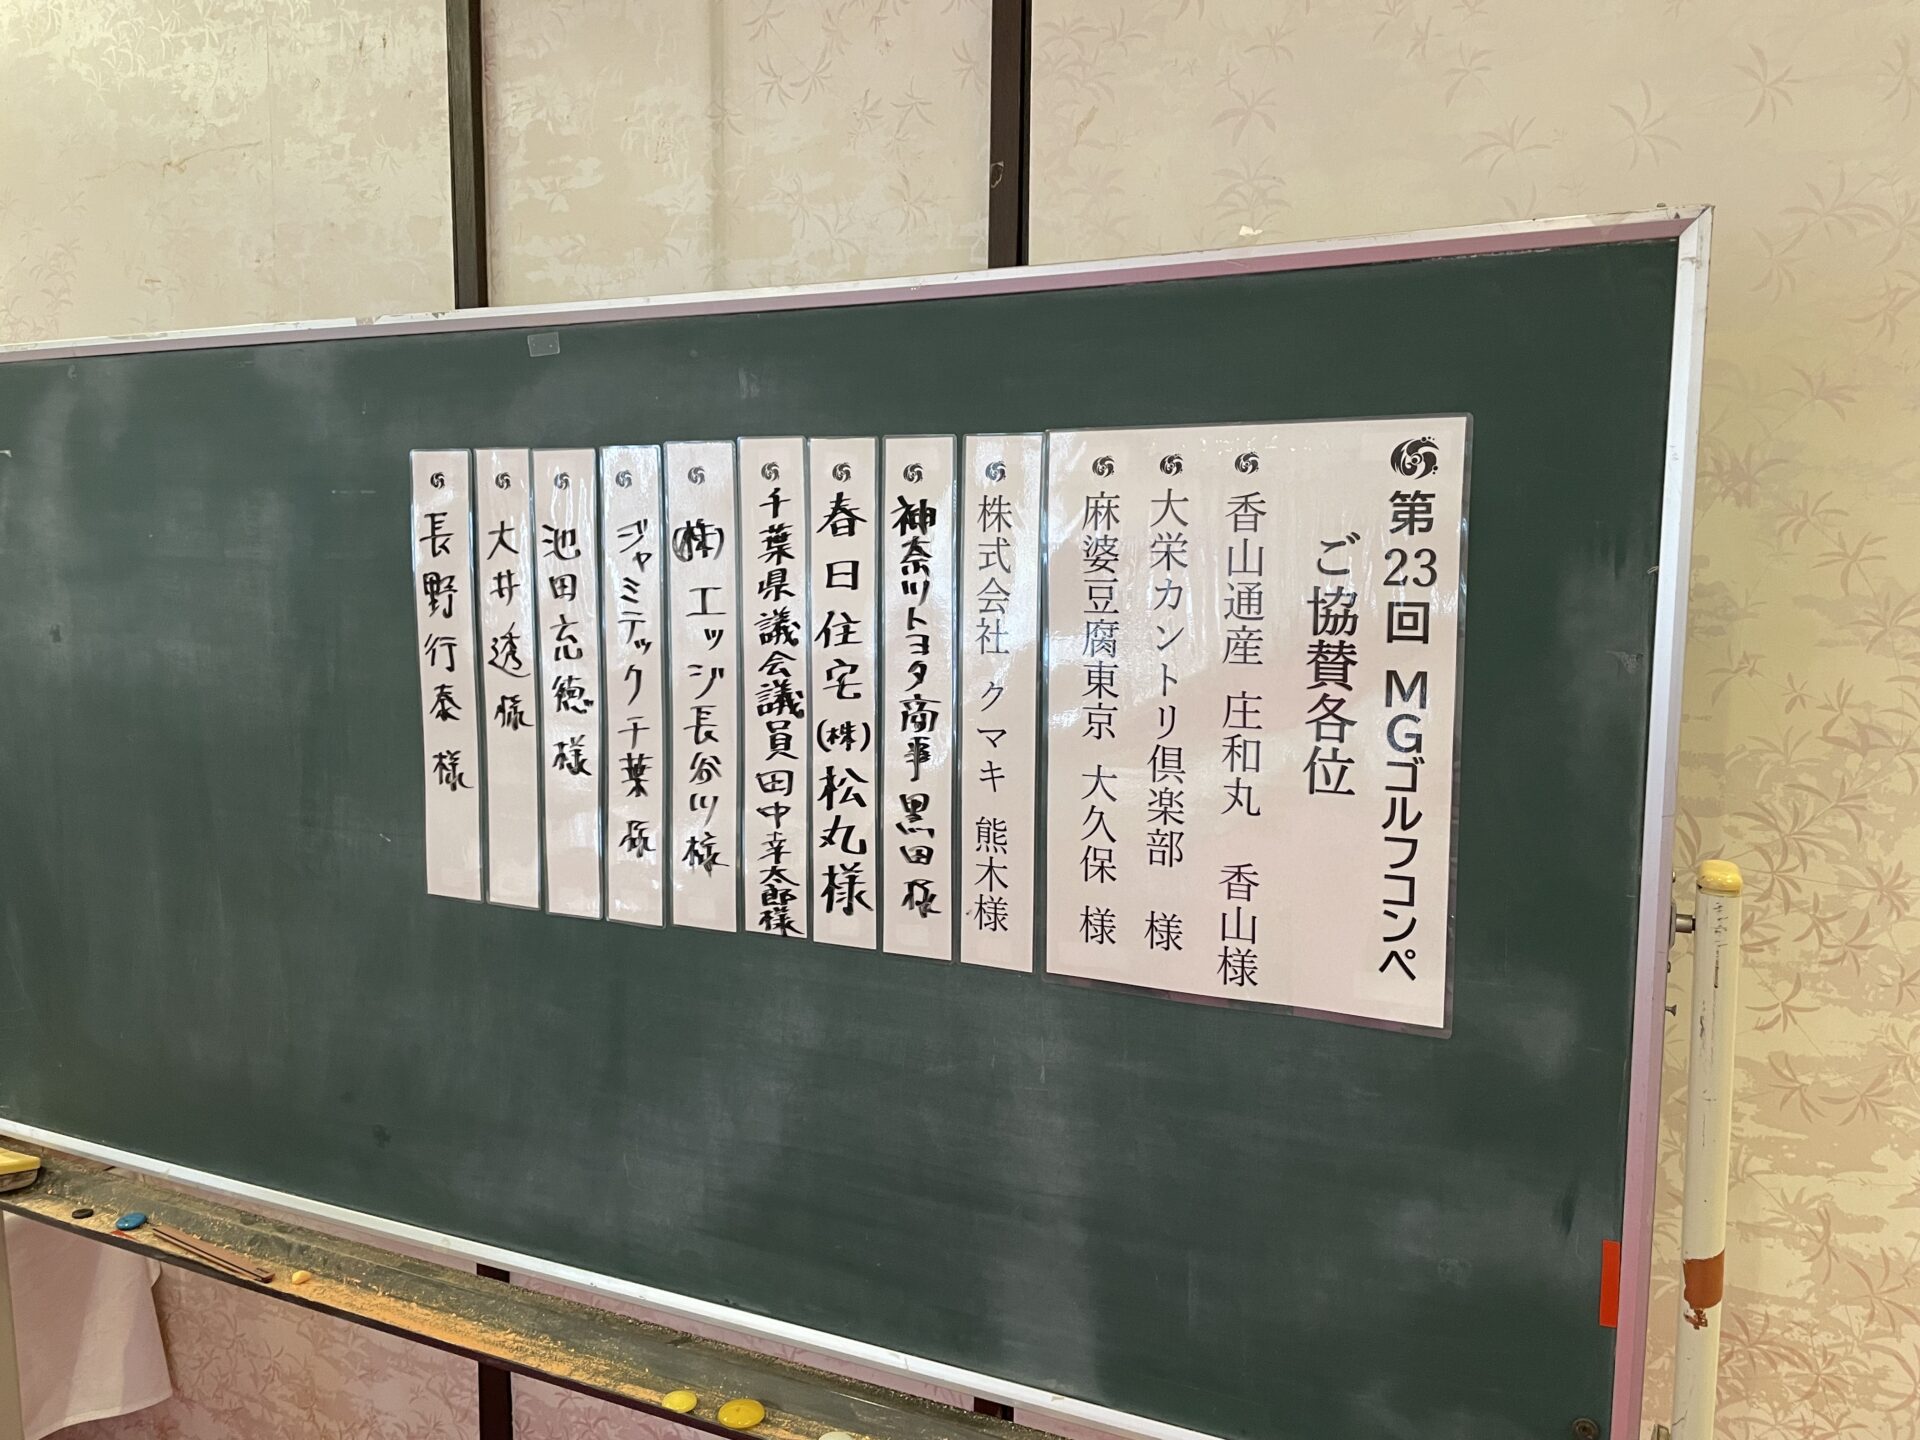 第23回 MGゴルフコンペ
ご協賛各位
香山通産 庄和丸 香山様
大栄カントリ倶楽部 様
麻婆豆腐東京 大久保 様
株式会社 クマキ 熊木様
神奈川トヨタ商事 黒田 様
春日住宅(株)松丸様
千葉県議会議員田中幸太郎様
(株)エッジ長谷川様
ジャミテック千葉 様
池田充徳様
大井透様
長野行泰様